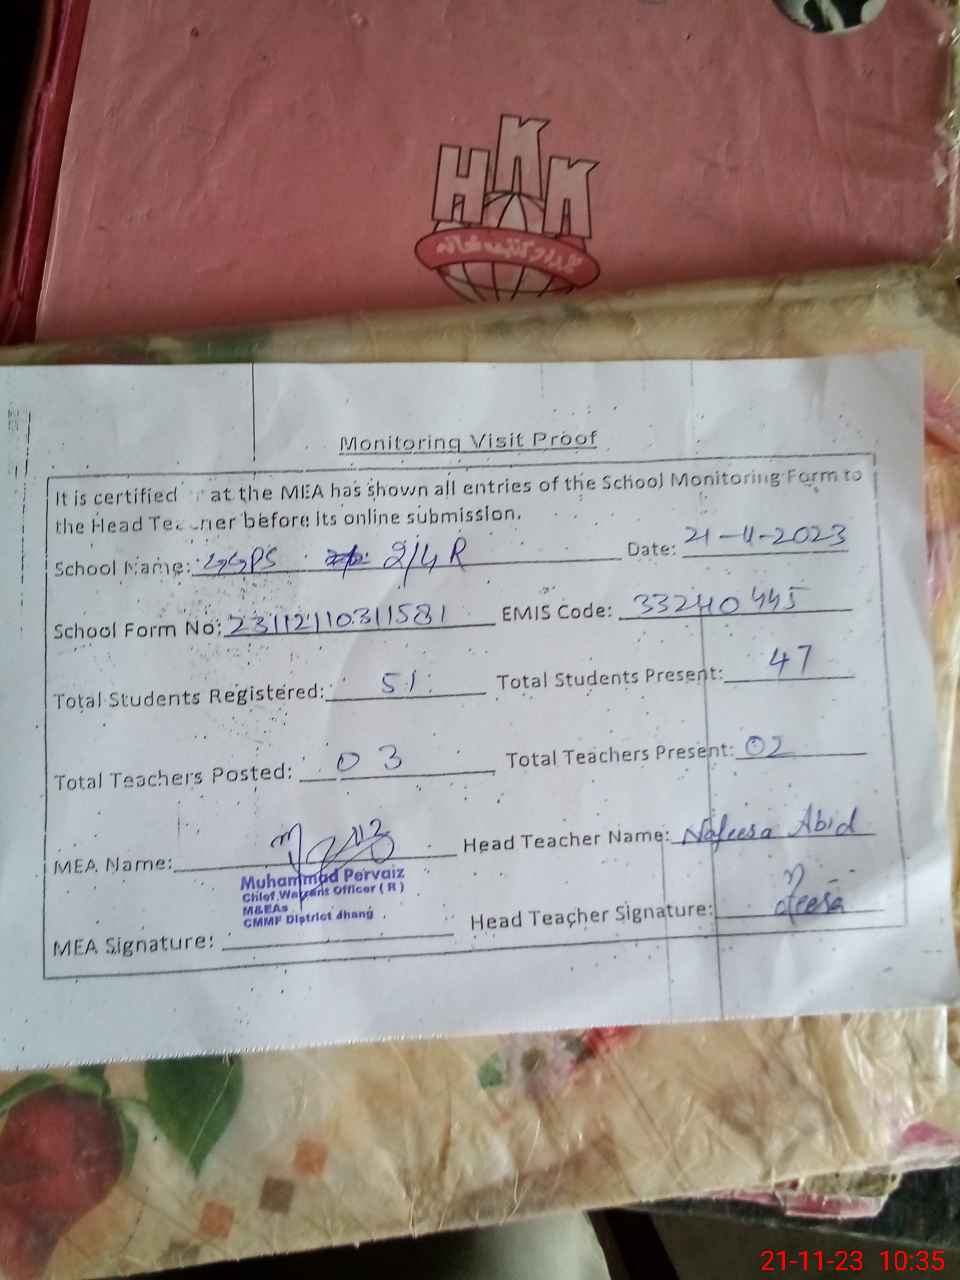 HKK
Monitoring Visit Proof
It is certified at the MEA has shown all entries of the School Monitoring Form to
the Head Teacher before its online submission.
School Name: GGPS 2/4 R Date: 21-11-2023
School Form No: 23112110311581 EMIS Code: 33240445
Total Students Registered: 51 Total Students Present: 47
Total Teachers Posted: 03 Total Teachers Present: 02
MEA Name: Head Teacher Name: Nafeesa Abid
Muhammad Pervaiz
Chief Warrant Officer (R)
M&EAs
CMMF District Jhang
MEA Signature: Head Teacher Signature: Nafeesa
21-11-23 10:35